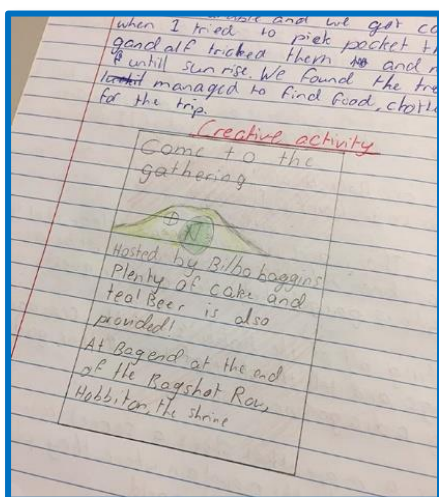 and we got co
when I tried to pick pocket t
gandalf tricked them and
untill sun rise. We found the tre
managed to find food, clothe
for the trip.
Creative activity
Come to the
gathering
Hosted by Bilbo baggins
Plenty of cake and
tea! Beer is also
provided!
At Bagend at the end
of the Bagshot Row,
Hobbiton, the shrine